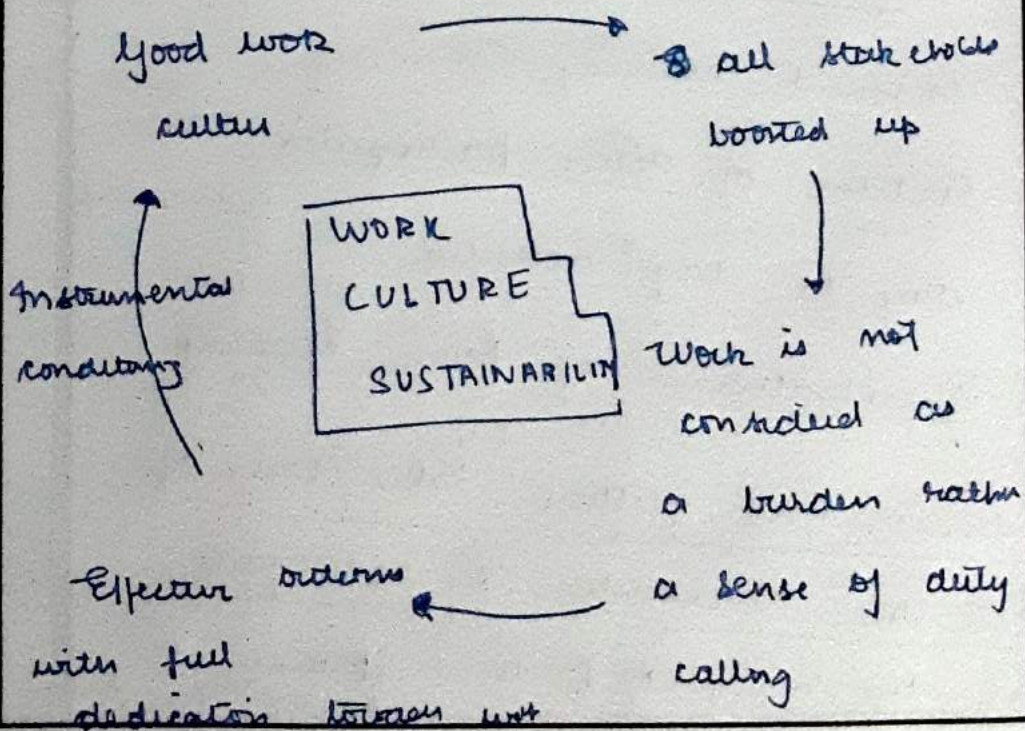 Good work
culture
all stakeholders
boosted up
WORK
CULTURE
SUSTAINABILITY
Instrumental
conditions
Work is not
considered as
a burden rather
a sense of duty
calling
Effective outcomes
with full
dedication towards work